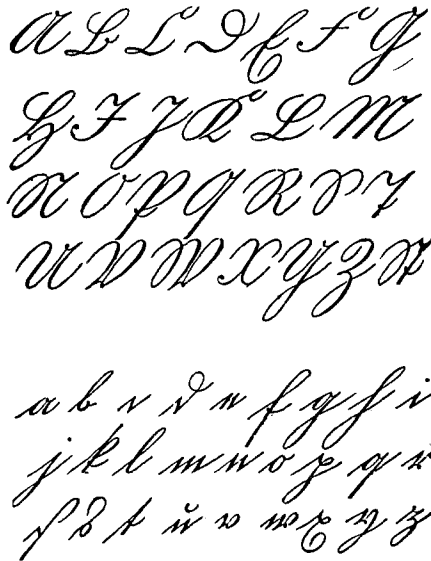 A B C D E F G
H I J K L M
N O P Q R S T
U V W X Y Z St
a b c d e f g h i
j k l m n o p q r
ſ s t u v w x y z